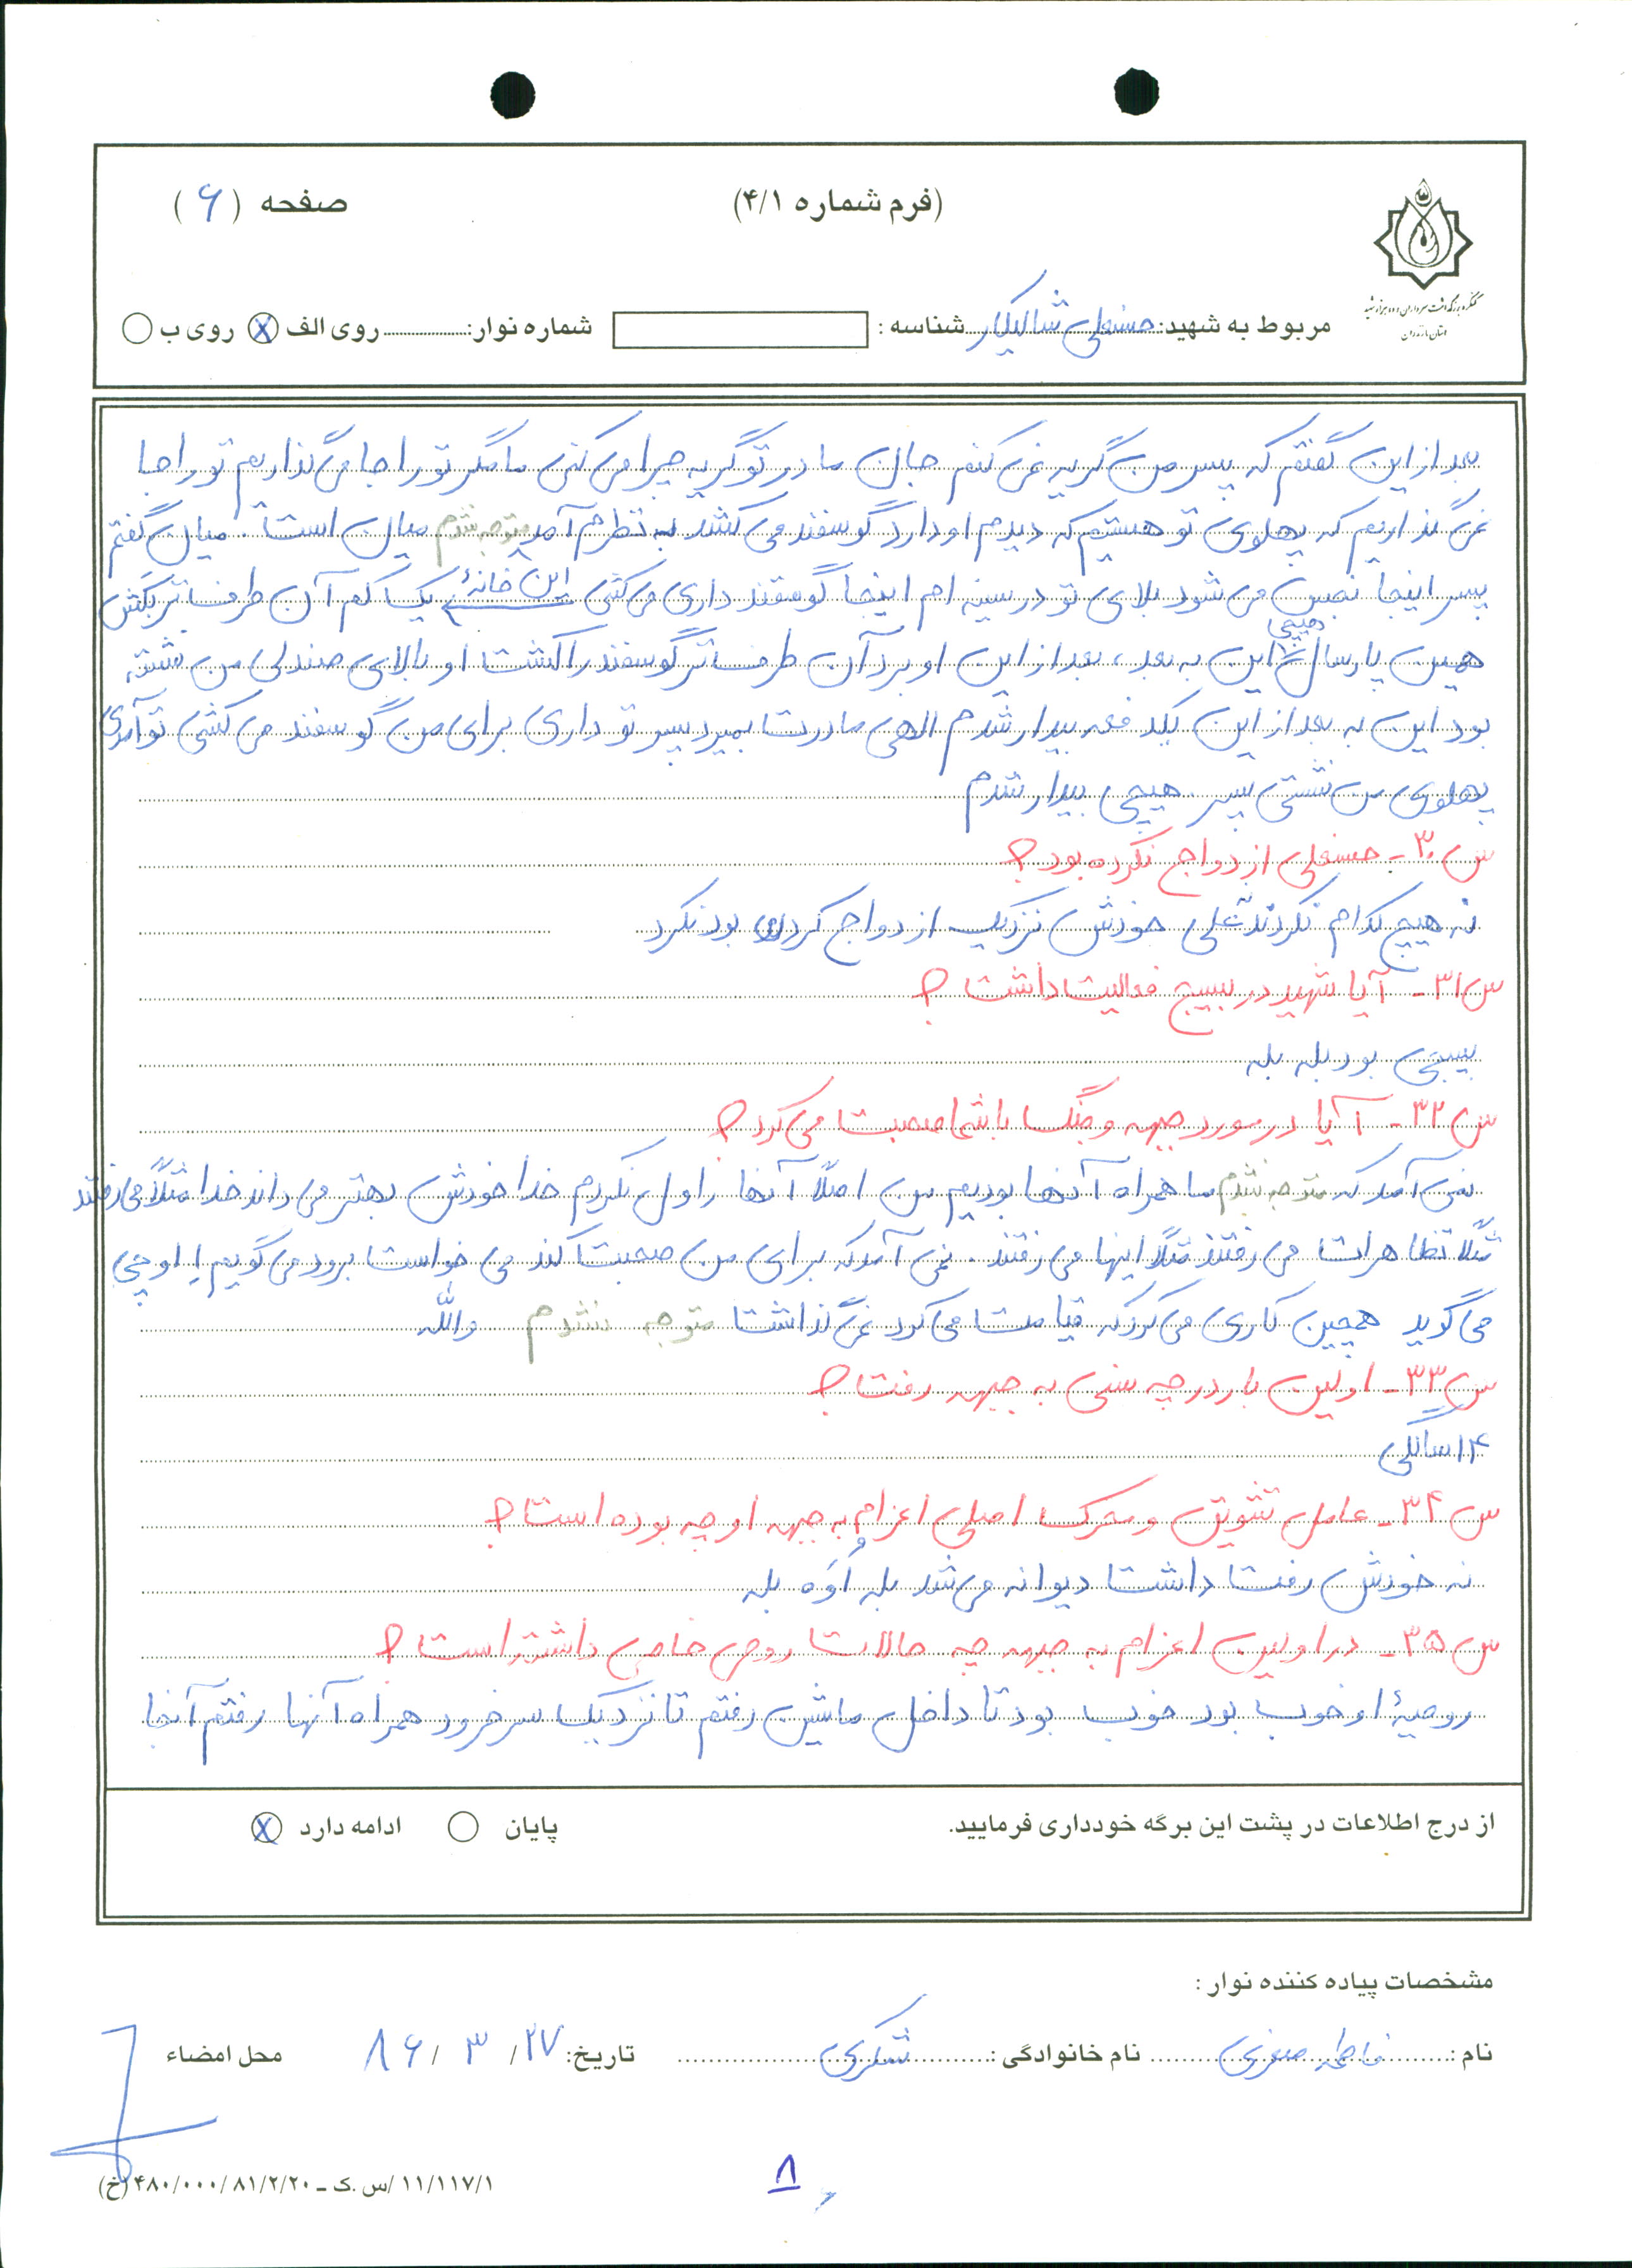 (فرم شماره ۴/۱)
صفحه (۶)
کنگره بزرگداشت سرداران و ده هزار شهید
استان مازندران
مربوط به شهید: حسنعلی شالیکار شناسه: شماره نوار: روی الف روی ب
بعد از این گفتم که پسر من گریه نمی کنم جان مادر تو گریه چرا می کنی ما مگر تو را جا می گذاریم تو را جا
نمی گذاریم که پهلوی تو هستیم که دیدم او دارد گوسفند می کشد به نظرم آمد متوجه نشدم میان است. میان گفتم
پسر اینجا نجس می شود بلای تو در سینه ام اینجا گوسفند داری می کشی این خانهٔ یک کم آن طرف تر بکش
همین پارسال هیچی این به بعد، بعد از این او برد آن طرف تر گوسفند را کشت او بالای صندلی من نشسته
بود این به بعد از این یکدفعه بیدار شدم الهی مادرت بمیرد پسر تو داری برای من گوسفند می کشی تو آمدی
پهلوی من نشستی پسر. هیچی بیدار شدم
س۳۰- حسنعلی ازدواج نکرده بود؟
نه هیچ کدام نکردند علی خودش نزدیک ازدواج کردن بود نکرد
س۳۱- آیا شهید در بسیج فعالیت داشت؟
بسیجی بود بله بله
س۳۲- آیا در مورد جبهه و جنگ با شما صحبت می کرد؟
نمی آمد که متوجه نشدم ما همراه آنها بودیم من اصلاً آنها را ول نکردم خدا خودش بهتر می داند خدا مثلاً می رفتند
مثلاً تظاهرات می رفتند مثلاً اینها می رفتند. نمی آمد که برای من صحبت کند می خواست برود می گویم او چی
می گوید همچین کاری می کرد که قیامت می کرد نمی گذاشت متوجه نشدم والله
س۳۳- اولین بار در چه سنی به جبهه رفت؟
۱۴ سالگی
س۳۴- عامل تشویق و محرک اصلی اعزام به جبهه او چه بوده است؟
نه خودش رفت داشت دیوانه می شد بله اُوَه بله
س۳۵- در اولین اعزام به جبهه چه حالات روحی خاصی داشته است؟
روحیهٔ او خوب بود خوب بود تا داخل ماشین رفتم تا نزدیک سرخرود همراه آنها رفتم آنجا
از درج اطلاعات در پشت این برگه خودداری فرمایید. پایان ادامه دارد
مشخصات پیاده کننده نوار:
نام: فاطمه صغری نام خانوادگی: شکری تاریخ: ۲۷/ ۳ / ۸۶ محل امضاء
۸
۱۱/۱۱۷/۱ /س.ک ـ ۴۸۰/۰۰۰/۸۱/۲/۲۰ (خ)